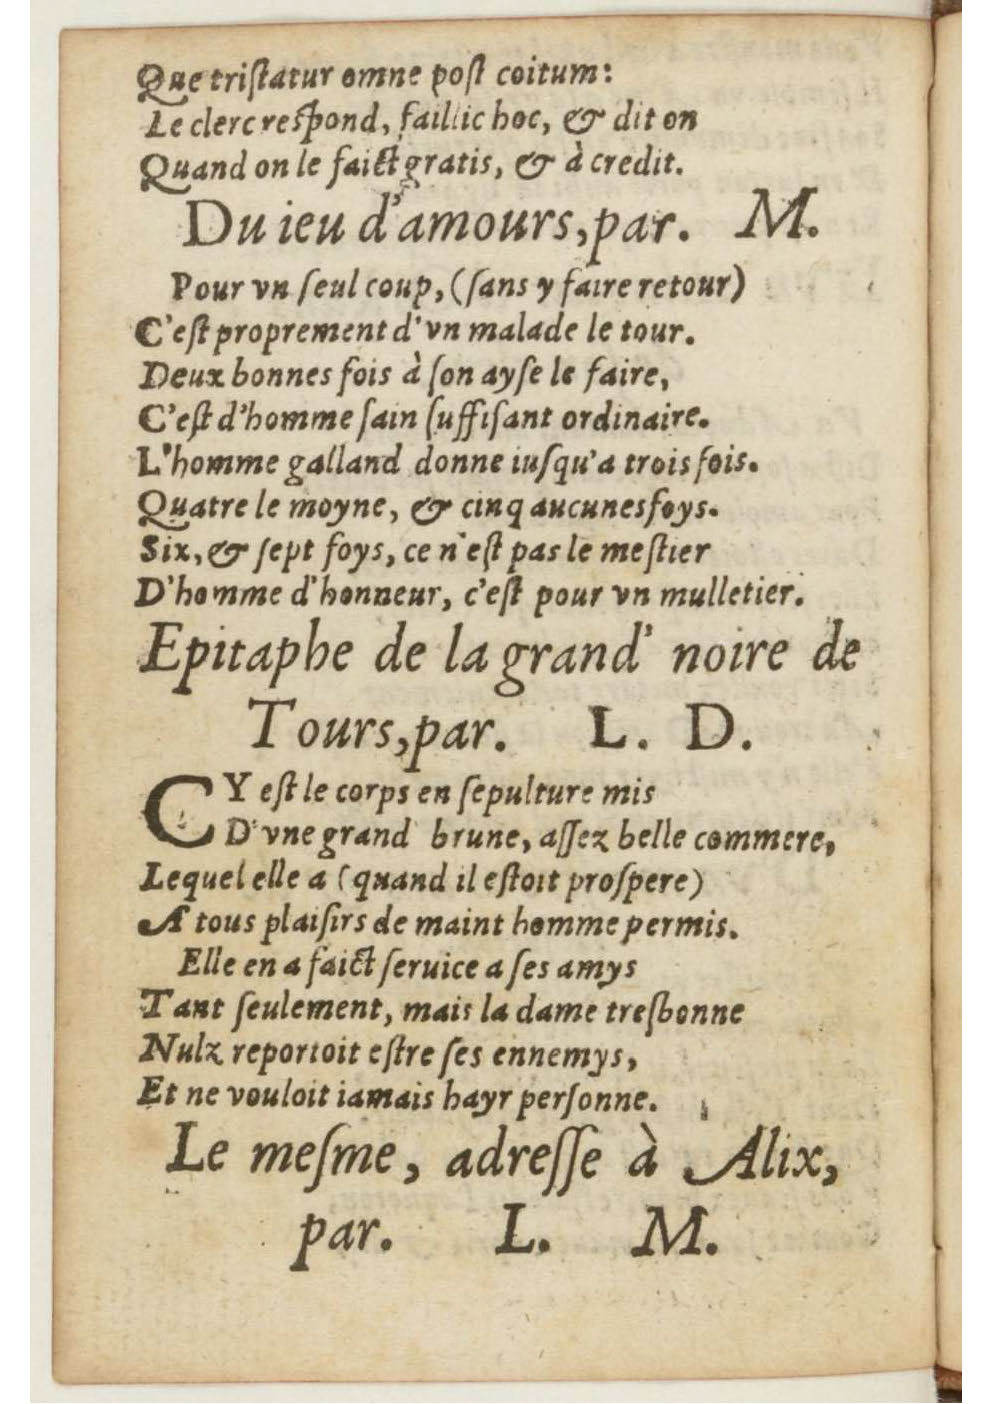 Que triſtatur omne poſt coitum:
Le clerc reſpond, faillic hoc, & dit on
Quand on le faict gratis, & à credit.
Du ieu d'amours, par. M.
Pour vn ſeul coup, (ſans y faire retour)
C'eſt proprement d'vn malade le tour.
Deux bonnes fois à ſon ayſe le faire,
C'eſt d'homme ſain ſuffiſant ordinaire.
L'homme galland donne iuſqu'a trois fois.
Quatre le moyne, & cinq aucunesfoys.
Six, & ſept foys, ce n'eſt pas le meſtier
D'homme d'honneur, c'eſt pour vn mulletier.
Epitaphe de la grand' noire de
Tours, par. L. D.
CY eſt le corps en ſepulture mis
D'vne grand brune, aſſez belle commere,
Lequel elle a (quand il eſtoit proſpere)
A tous plaiſirs de maint homme permis.
Elle en a faict ſeruice a ſes amys
Tant ſeulement, mais la dame treſbonne
Nulz reportoit eſtre ſes ennemys,
Et ne vouloit iamais hayr perſonne.
Le meſme, adreſſe à Alix,
par. L. M.